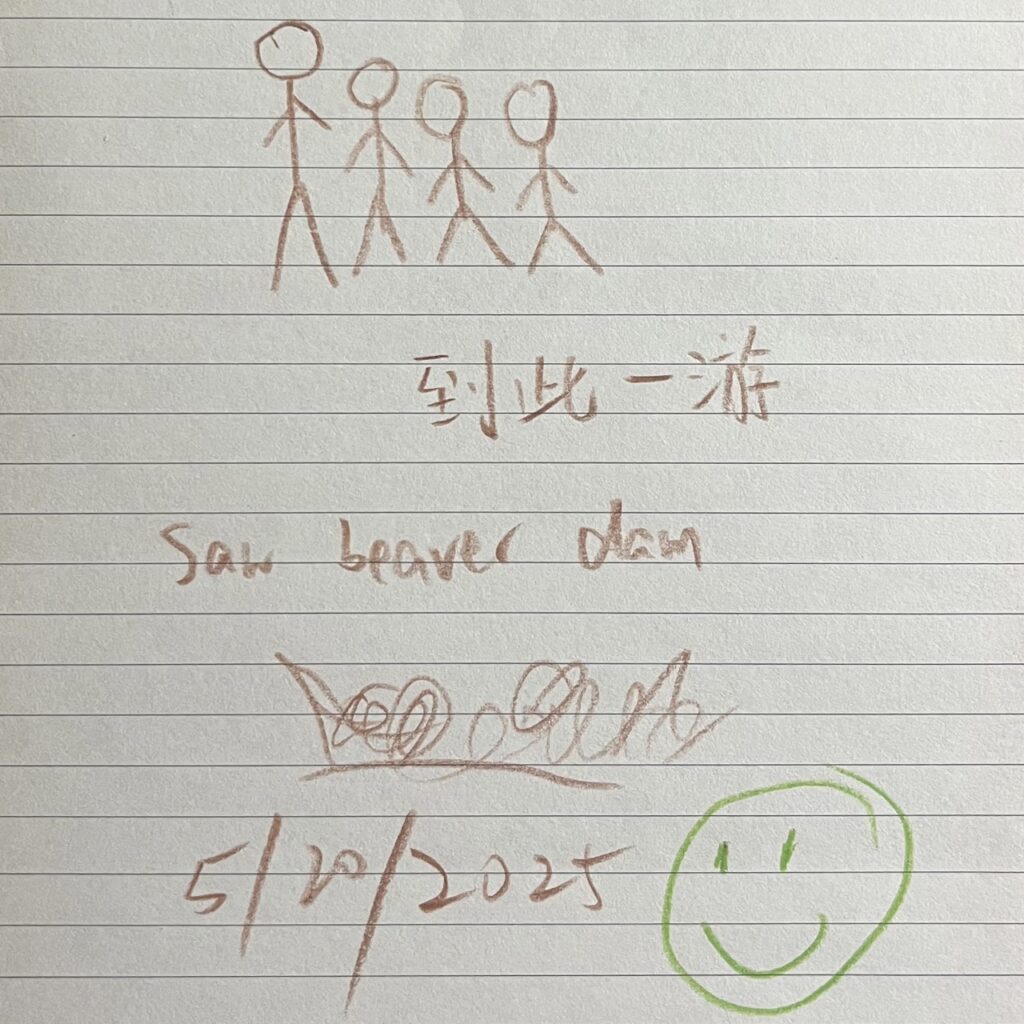 到此一游
Saw beaver dam
5/20/2025